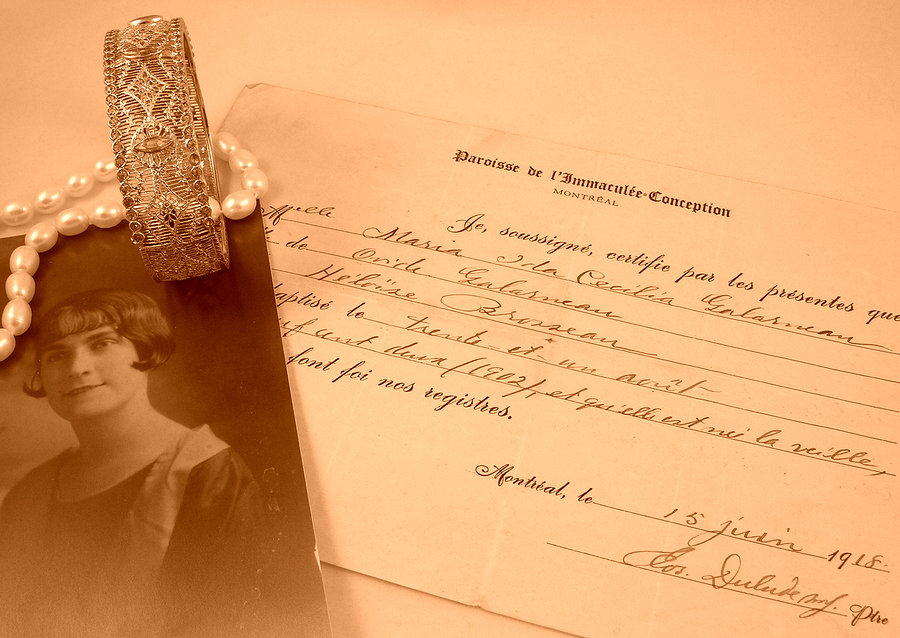 Paroisse de l'Immaculée-Conception
MONTRÉAL
Je, soussigné, certifie par les présentes que
Mlle Maria Ida Cecilia Galarneau
de Ovide Galarneau
Héloïse Brosseau
baptisé le trente-et-un août
neuf cent deux (1902), et qu'elle est née la veille,
font foi nos registres.
Montréal, le 15 juin 1918.
Ptre